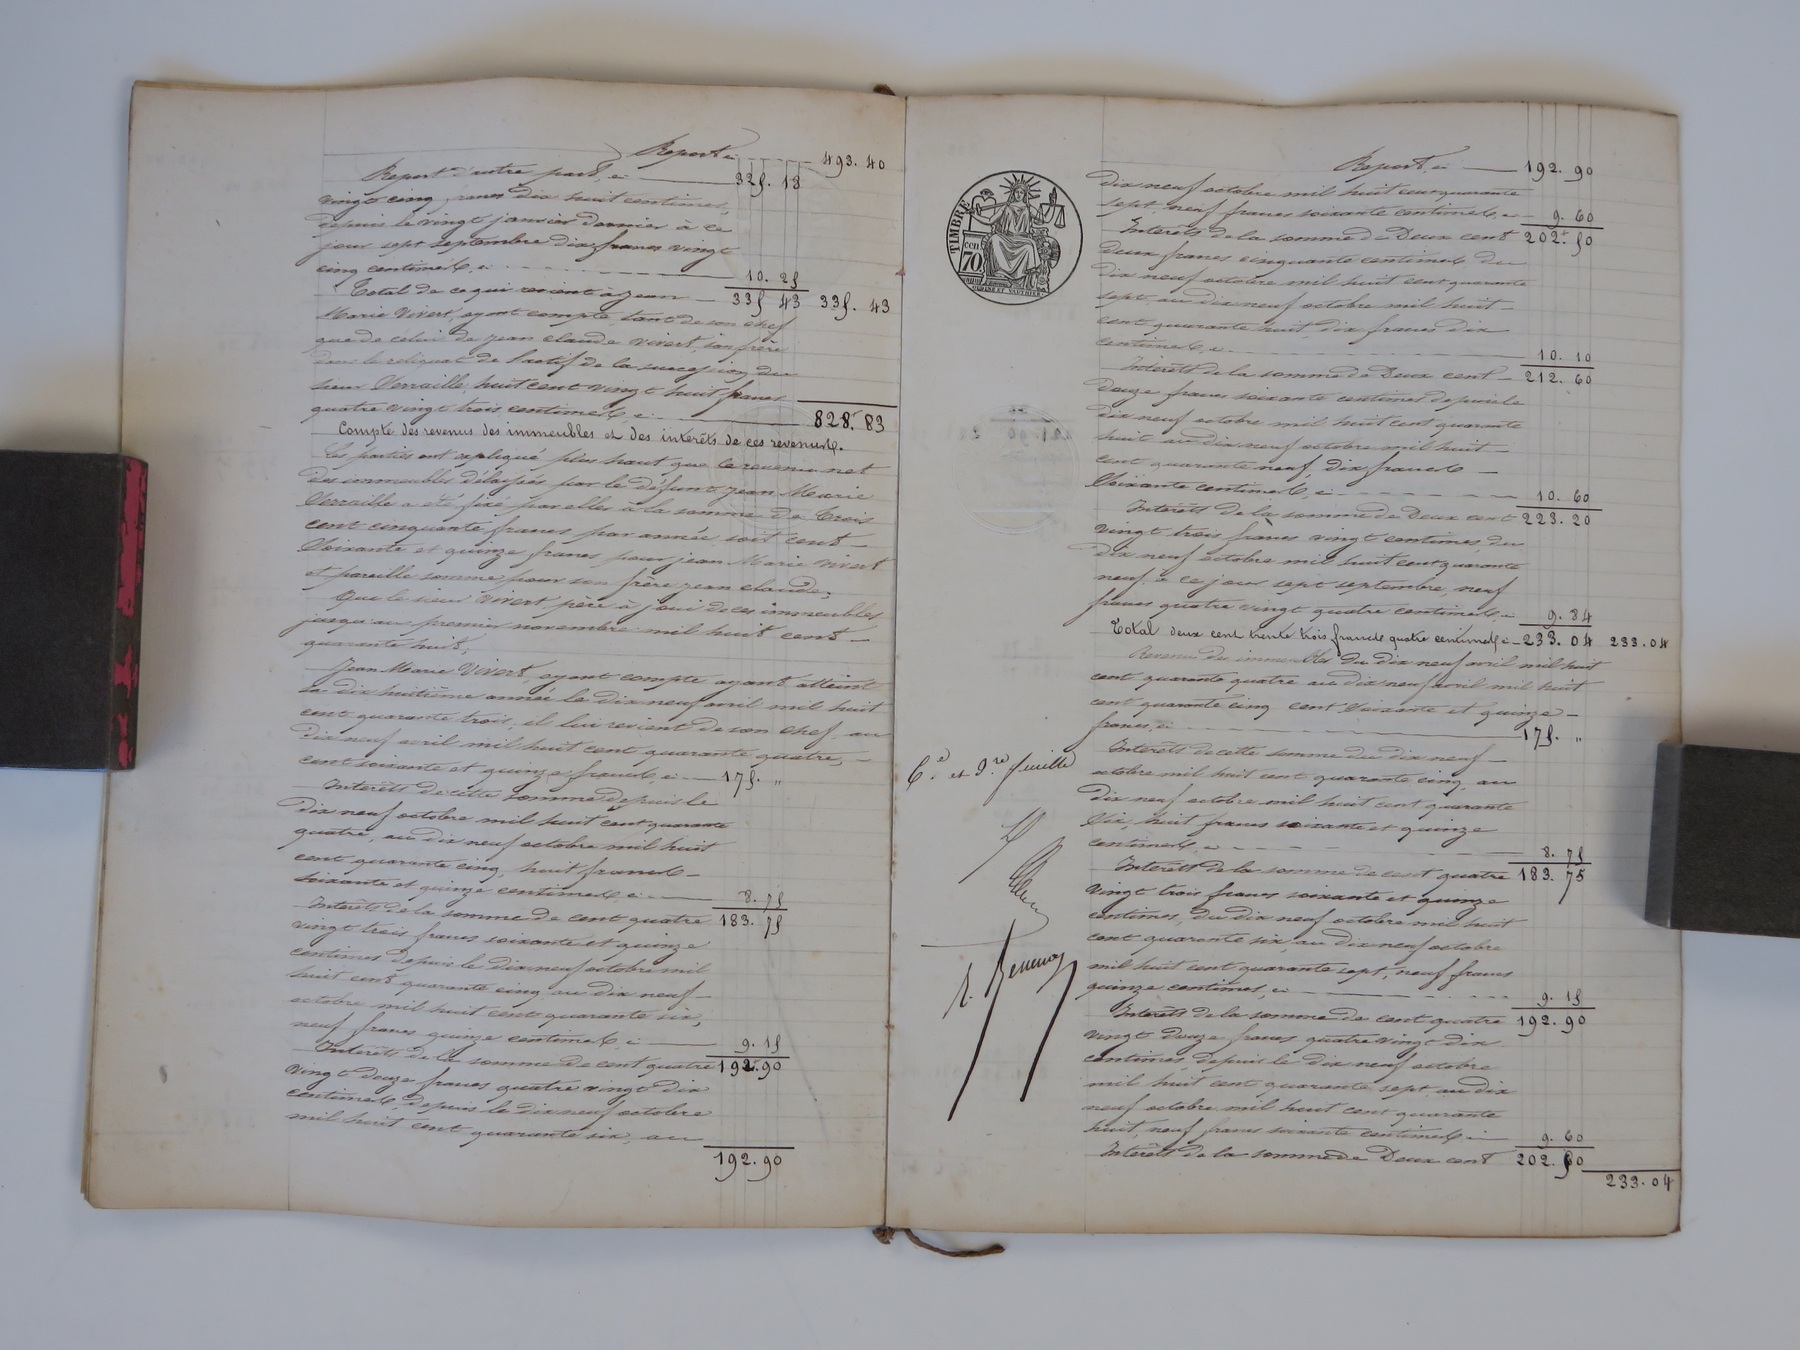 Report ci 493. 40
Report d'autre part, ci 325. 18
vingt cinq francs dix huit centimes,
depuis le vingt janvier dernier à ce
jour sept septembre dix francs vingt
cinq centimes, ci 10. 25
Total de ce qui revient à Jean 335 43 335. 43
Marie Vivert, ayant compte, tant de son chef
que de celui de Jean Claude Vivert, son frère
dans le reliquat de l'actif de la succession du
sieur Verraille, huit cent vingt huit francs
quatre vingt trois centimes, ci 828. 83
Compte des revenus des immeubles et des intérêts de ces revenus.
Les parties ont expliqué plus haut que le revenu net
des immeubles délaissés par le défunt Jean Marie
Verraille a été fixé par elles à la somme de Trois
cent cinquante francs par année, soit cent
Soixante et quinze francs pour Jean Marie Vivert
et pareille somme pour son frère Jean Claude;
Que le sieur Vivert père à joui de ces immeubles
jusqu'au premier novembre mil huit cent
quarante huit;
Jean Marie Vivert, ayant compte ayant atteint
sa dix huitième année le dix neuf avril mil huit
cent quarante trois, il lui revient de son chef au
dix neuf avril mil huit cent quarante quatre,
cent soixante et quinze francs, ci 175. "
Intérêts de cette somme depuis le
dix neuf octobre mil huit cent quarante
quatre, au dix neuf octobre mil huit
cent quarante cinq, huit francs
soixante et quinze centimes, ci 8. 75
Intérêts de la somme de cent quatre 183. 75
vingt trois francs soixante et quinze
centimes depuis le dix neuf octobre mil
huit cent quarante cinq au dix neuf
octobre mil huit cent quarante six,
neuf francs quinze centimes, ci 9. 15
Intérêts de la somme de cent quatre 192. 90
vingt douze francs quatre vingt dix
centimes, depuis le dix neuf octobre
mil huit cent quarante six, au
192. 90
Report, ci 192. 90
TIMBRE
70 cen
dix neuf octobre mil huit cent quarante
sept, neuf francs soixante centimes, ci 9. 60
Intérêts de la somme de Deux cent 202. 50
deux francs cinquante centimes du
dix neuf octobre mil huit cent quarante
sept, au dix neuf octobre mil huit
cent quarante huit, dix francs dix
centimes, ci 10. 10
Intérêts de la somme de Deux cent 212. 60
douze francs soixante centimes depuis le
dix neuf octobre mil huit cent quarante
huit au dix neuf octobre mil huit
cent quarante neuf, dix francs
Soixante centimes, ci 10. 60
Intérêts de la somme de Deux cent 223. 20
vingt trois francs vingt centimes, du
dix neuf octobre mil huit cent quarante
neuf à ce jour sept septembre, neuf
francs quatre vingt quatre centimes, ci 9. 84
Total deux cent trente trois francs quatre centimes ci 233. 04 233. 04
Revenu des immeubles du dix neuf avril mil huit
cent quarante quatre au dix neuf avril mil huit
cent quarante cinq cent Soixante et quinze
francs, ci 175. "
6.e et 9.re feuille
Intérêts de cette somme du dix neuf
octobre mil huit cent quarante cinq, au
dix neuf octobre mil huit cent quarante
Six, huit francs soixante et quinze
centimes, ci 8. 75
Intérêts de la somme de cent quatre 183. 75
vingt trois francs soixante et quinze
centimes, du dix neuf octobre mil huit
cent quarante six, au dix neuf octobre
mil huit cent quarante sept, neuf francs
quinze centimes, ci 9. 15
Intérêts de la somme de cent quatre 192. 90
vingt douze francs quatre vingt dix
centimes, depuis le dix neuf octobre
mil huit cent quarante sept, au dix
neuf octobre mil huit cent quarante
huit, neuf francs soixante centimes ci 9. 60
Intérêts de la somme de Deux cent 202. 50
233. 04